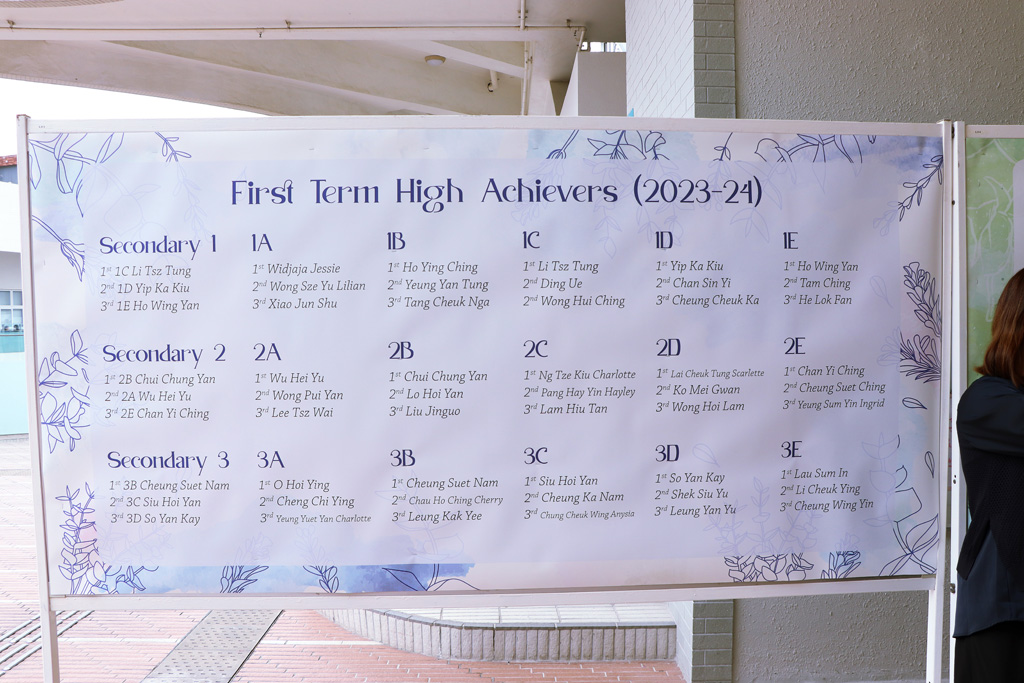 First Term High Achievers (2023-24)
Secondary 1
1st 1C Li Tsz Tung
2nd 1D Yip Ka Kiu
3rd 1E Ho Wing Yan
1A
1st Widjaja Jessie
2nd Wong Sze Yu Lilian
3rd Xiao Jun Shu
1B
1st Ho Ying Ching
2nd Yeung Yan Tung
3rd Tang Cheuk Nga
1C
1st Li Tsz Tung
2nd Ding Ue
2nd Wong Hui Ching
1D
1st Yip Ka Kiu
2nd Chan Sin Yi
3rd Cheung Cheuk Ka
1E
1st Ho Wing Yan
2nd Tam Ching
3rd He Lok Fan
Secondary 2
1st 2B Chui Chung Yan
2nd 2A Wu Hei Yu
3rd 2E Chan Yi Ching
2A
1st Wu Hei Yu
2nd Wong Pui Yan
3rd Lee Tsz Wai
2B
1st Chui Chung Yan
2nd Lo Hoi Yan
3rd Liu Jinguo
2C
1st Ng Tze Kiu Charlotte
2nd Pang Hay Yin Hayley
3rd Lam Hiu Tan
2D
1st Lai Cheuk Tung Scarlette
2nd Ko Mei Gwan
3rd Wong Hoi Lam
2E
1st Chan Yi Ching
2nd Cheung Suet Ching
3rd Yeung Sum Yin Ingrid
Secondary 3
1st 3B Cheung Suet Nam
2nd 3C Siu Hoi Yan
3rd 3D So Yan Kay
3A
1st O Hoi Ying
2nd Cheng Chi Ying
3rd Yeung Yuet Yan Charlotte
3B
1st Cheung Suet Nam
2nd Chau Ho Ching Cherry
3rd Leung Kak Yee
3C
1st Siu Hoi Yan
2nd Cheung Ka Nam
3rd Chung Cheuk Wing Anysia
3D
1st So Yan Kay
2nd Shek Siu Yu
3rd Leung Yan Yu
3E
1st Lau Sum In
2nd Li Cheuk Ying
3rd Cheung Wing Yin